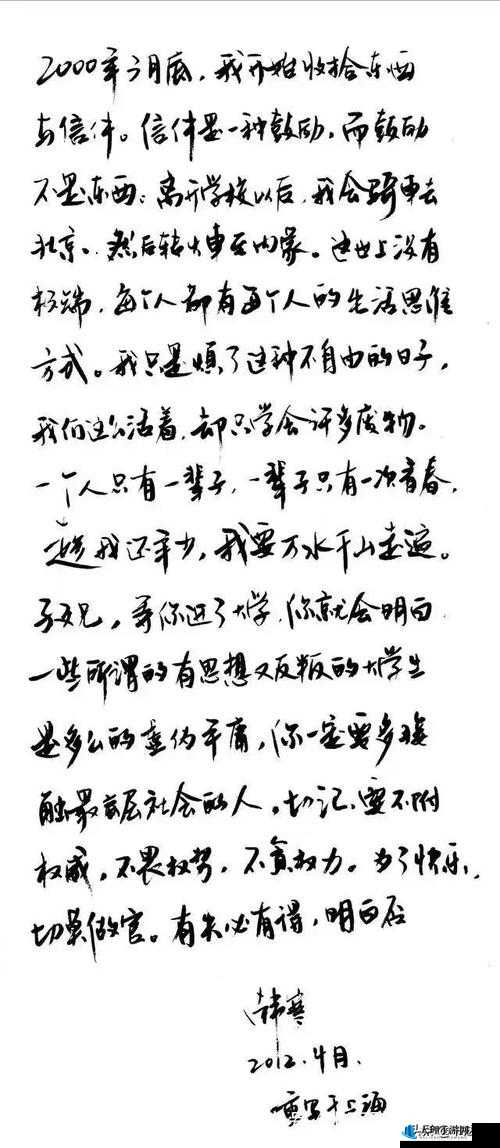 2000年3月底，我开始收拾东西
与信件。信件是一种鼓励，而鼓励
不是东西；离开学校以后，我会骑车去
北京、然后转火车至内蒙。这世上没有
极端，每个人都有每个人的生活思维
方式。我只是烦了这种不自由的日子，
我们这么活着，却只学会许多废物。
一个人只有一辈子，一辈子只有一次青春，
趁我还年少，我要万水千山走遍。
子文兄，等你进了大学，你就会明白
一些所谓的有思想又反叛的大学生
是多么的虚伪平庸，你一定要多接
触最底层社会的人。切记，要不附
权威，不畏权势，不贪权力。为了快乐，
切莫做官。有失必有得，明白否
韩寒
2012.4月.
重写于上海